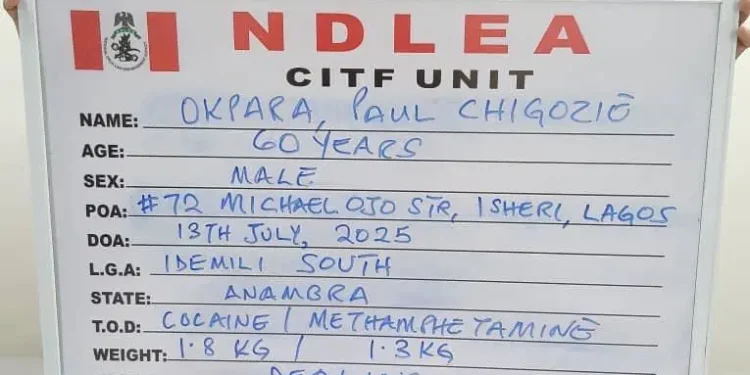 NDLEA
CITF UNIT
NAME: OKPARA, PAUL CHIGOZIE
AGE: 60 YEARS
SEX: MALE
POA: #72 MICHAEL OJO STR, ISHERI, LAGOS
DOA: 13TH JULY, 2025
L.G.A: IDEMILI SOUTH
STATE: ANAMBRA
T.O.D: COCAINE / METHAMPHETAMINE
WEIGHT: 1.8 KG / 1.3KG